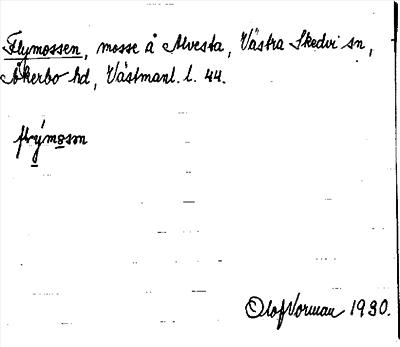 Flymossen, mosse å Alvesta, Västra Skedvi sn,
Åkerbo hd, Västmanl. l. 44.
flýmosən
Olof Vorman 1930.